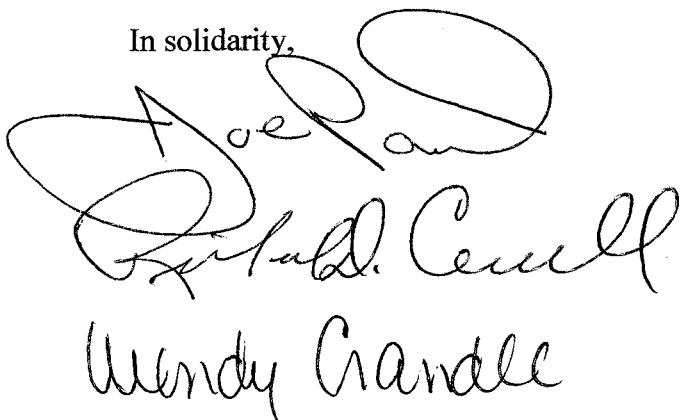 In solidarity,
Joe Paul
Richard D. Cornell
Wendy Crandle